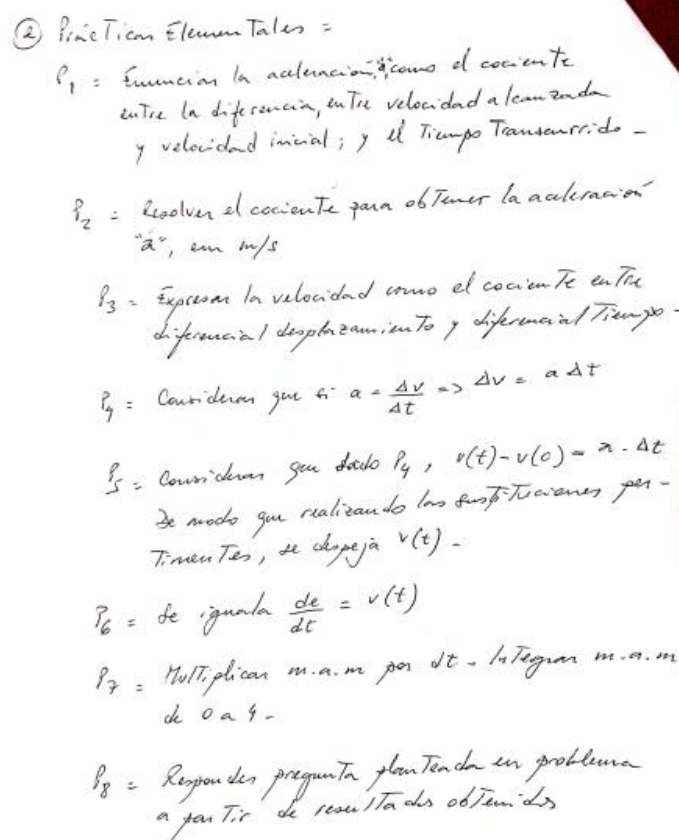 ② Prácticas Elementales =
P1 = Enunciar la aceleración, "a", como el cociente
entre la diferencia, entre velocidad alcanzada
y velocidad inicial; y el Tiempo Transcurrido -
P2 = Resolver el cociente para obtener la aceleración
"a", en m/s
P3 = Expresar la velocidad como el cociente entre
diferencial desplazamiento y diferencial Tiempo -
P4 = Considerar que si a = Δv/Δt => Δv = a Δt
P5 = Considerar que dado P4, v(t) - v(0) = a . Δt
De modo que realizando las sustituciones per-
Tinentes, se despeja v(t) -
P6 = Se iguala de/dt = v(t)
P7 = Multiplicar m.a.m por dt - Integrar m.a.m
de 0 a 4 -
P8 = Responder pregunta planteada en problema
a partir de resultados obtenidos